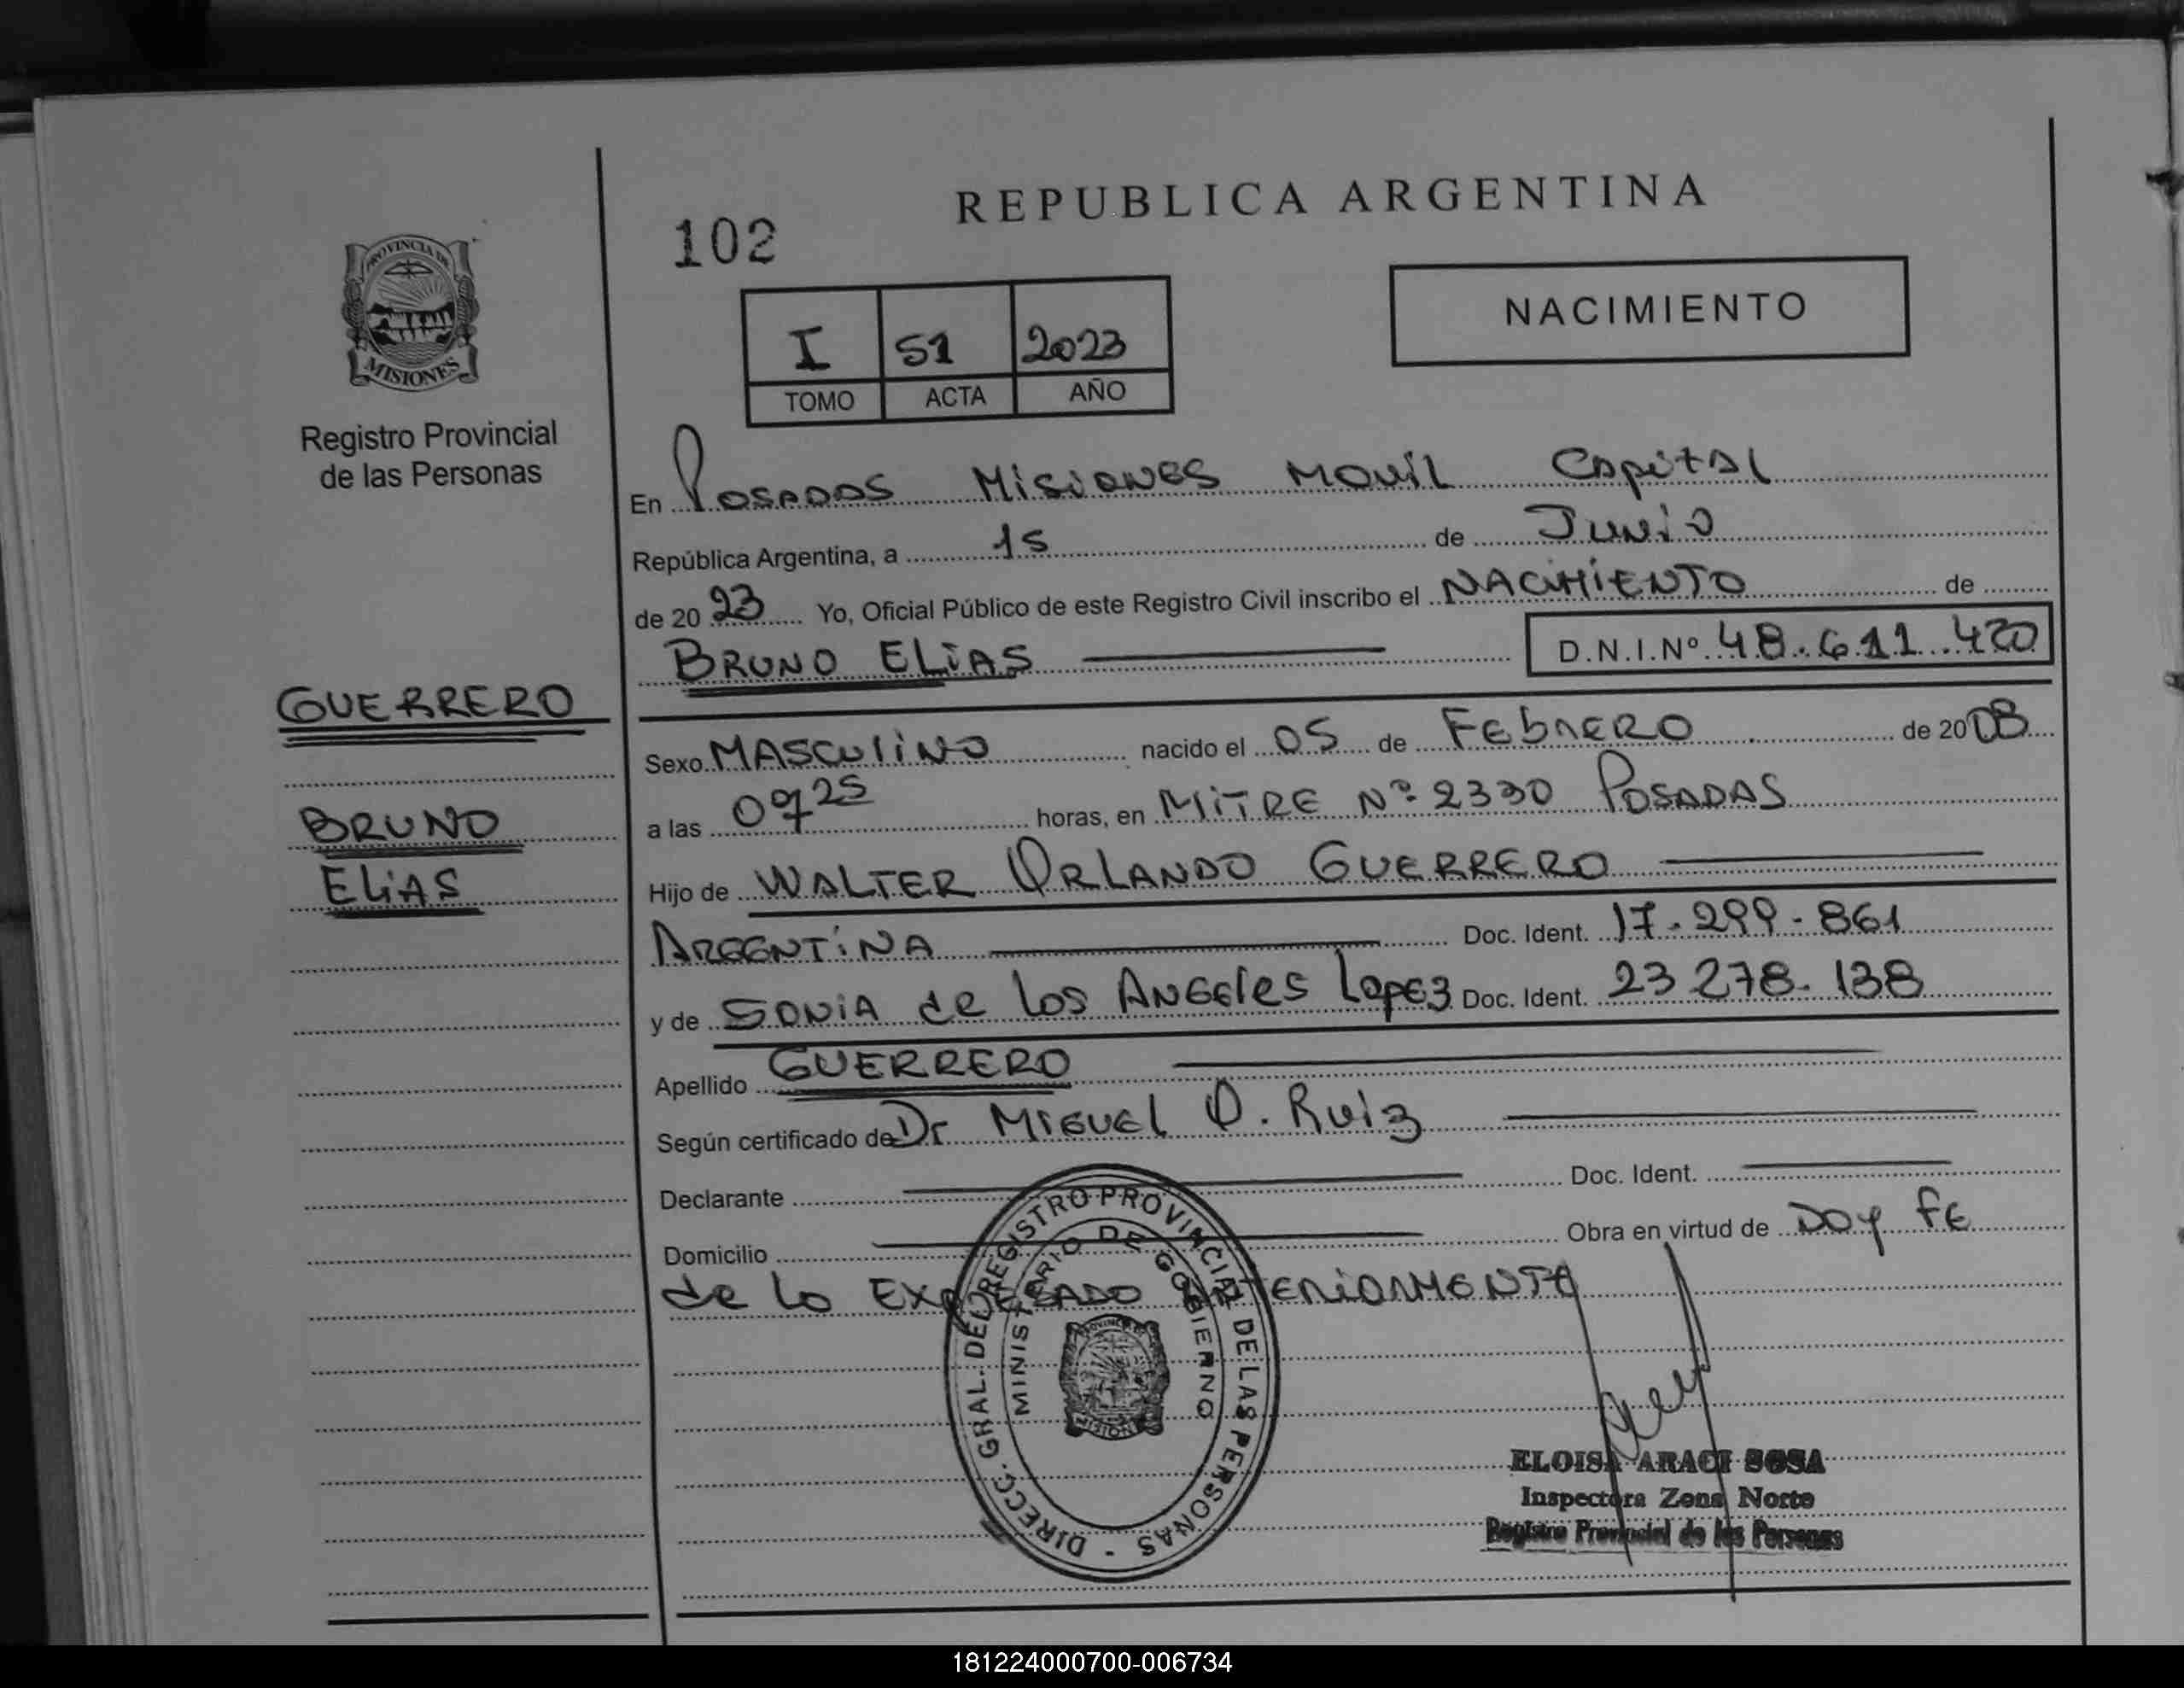 REPUBLICA ARGENTINA
102
NACIMIENTO
I 51 2023
TOMO ACTA AÑO
PROVINCIA DE
MISIONES
Registro Provincial
de las Personas
En POSADAS MISIONES MOVIL CAPITAL
República Argentina, a 15 de JUNIO
de 20 23 Yo, Oficial Público de este Registro Civil inscribo el NACIMIENTO de
BRUNO ELIAS D.N.I.Nº 48.611.420
GUERRERO
Sexo MASCULINO nacido el 05 de FEBRERO de 20 08
a las 09 25 horas, en MITRE Nº 2330 POSADAS
BRUNO
ELIAS
Hijo de WALTER ORLANDO GUERRERO
ARGENTINA Doc. Ident. 17.299.861
y de SONIA de los ANGELES LOPEZ Doc. Ident. 23 278.138
Apellido GUERRERO
Según certificado de Dr MIGUEL O. RUIZ
Declarante Doc. Ident.
Domicilio Obra en virtud de DOY FE
de lo EXPRESADO ANTERIORMENTE
DIRECC. GRAL. DEL REGISTRO PROVINCIAL DE LAS PERSONAS -
MINISTERIO DE GOBIERNO
ELOISA ARACI SOSA
Inspectora Zona Norte
Registro Provincial de las Personas
181224000700-006734